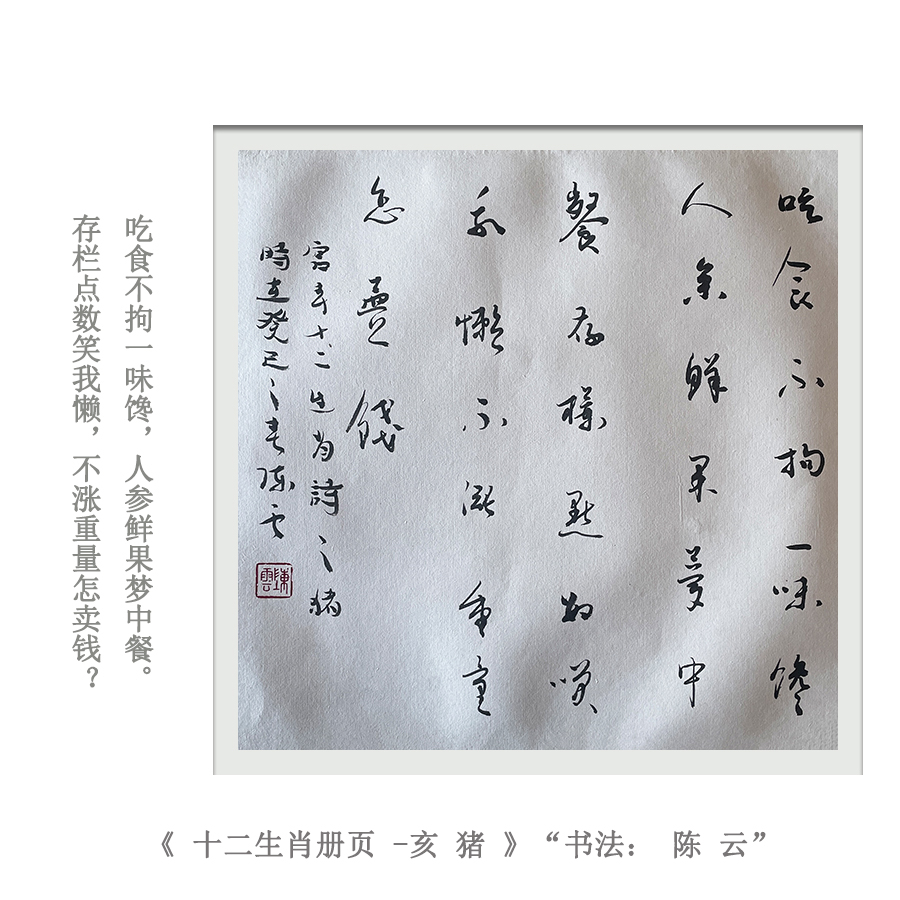 吃食不拘一味饞
人參鲜果夢中
餐存欄點数笑
我懶不漲重量
怎賣錢
十二生肖詩之猪
時在癸巳之春陳雲
陳雲
吃食不拘一味馋，人参鲜果梦中餐。
存栏点数笑我懒，不涨重量怎卖钱？
《 十二生肖册页 -亥 猪 》“书法： 陈 云”